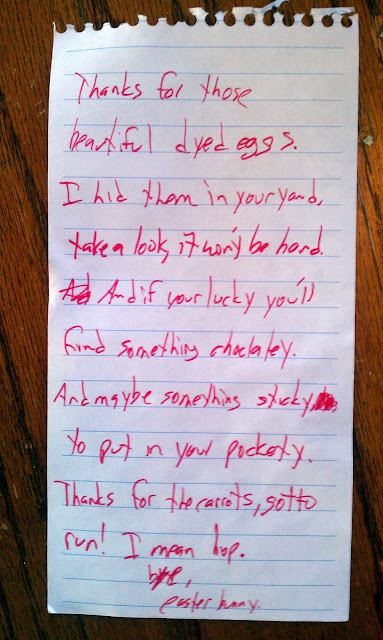 Thanks for those
beautiful dyed eggs.
I hid them in your yard,
take a look, it won't be hard.
And if your lucky you'll
find something choclatey.
And maybe something sticky,
to put in your pockety.
Thanks for the carrots, gotto
run! I mean hop.
bye,
easter bunny.